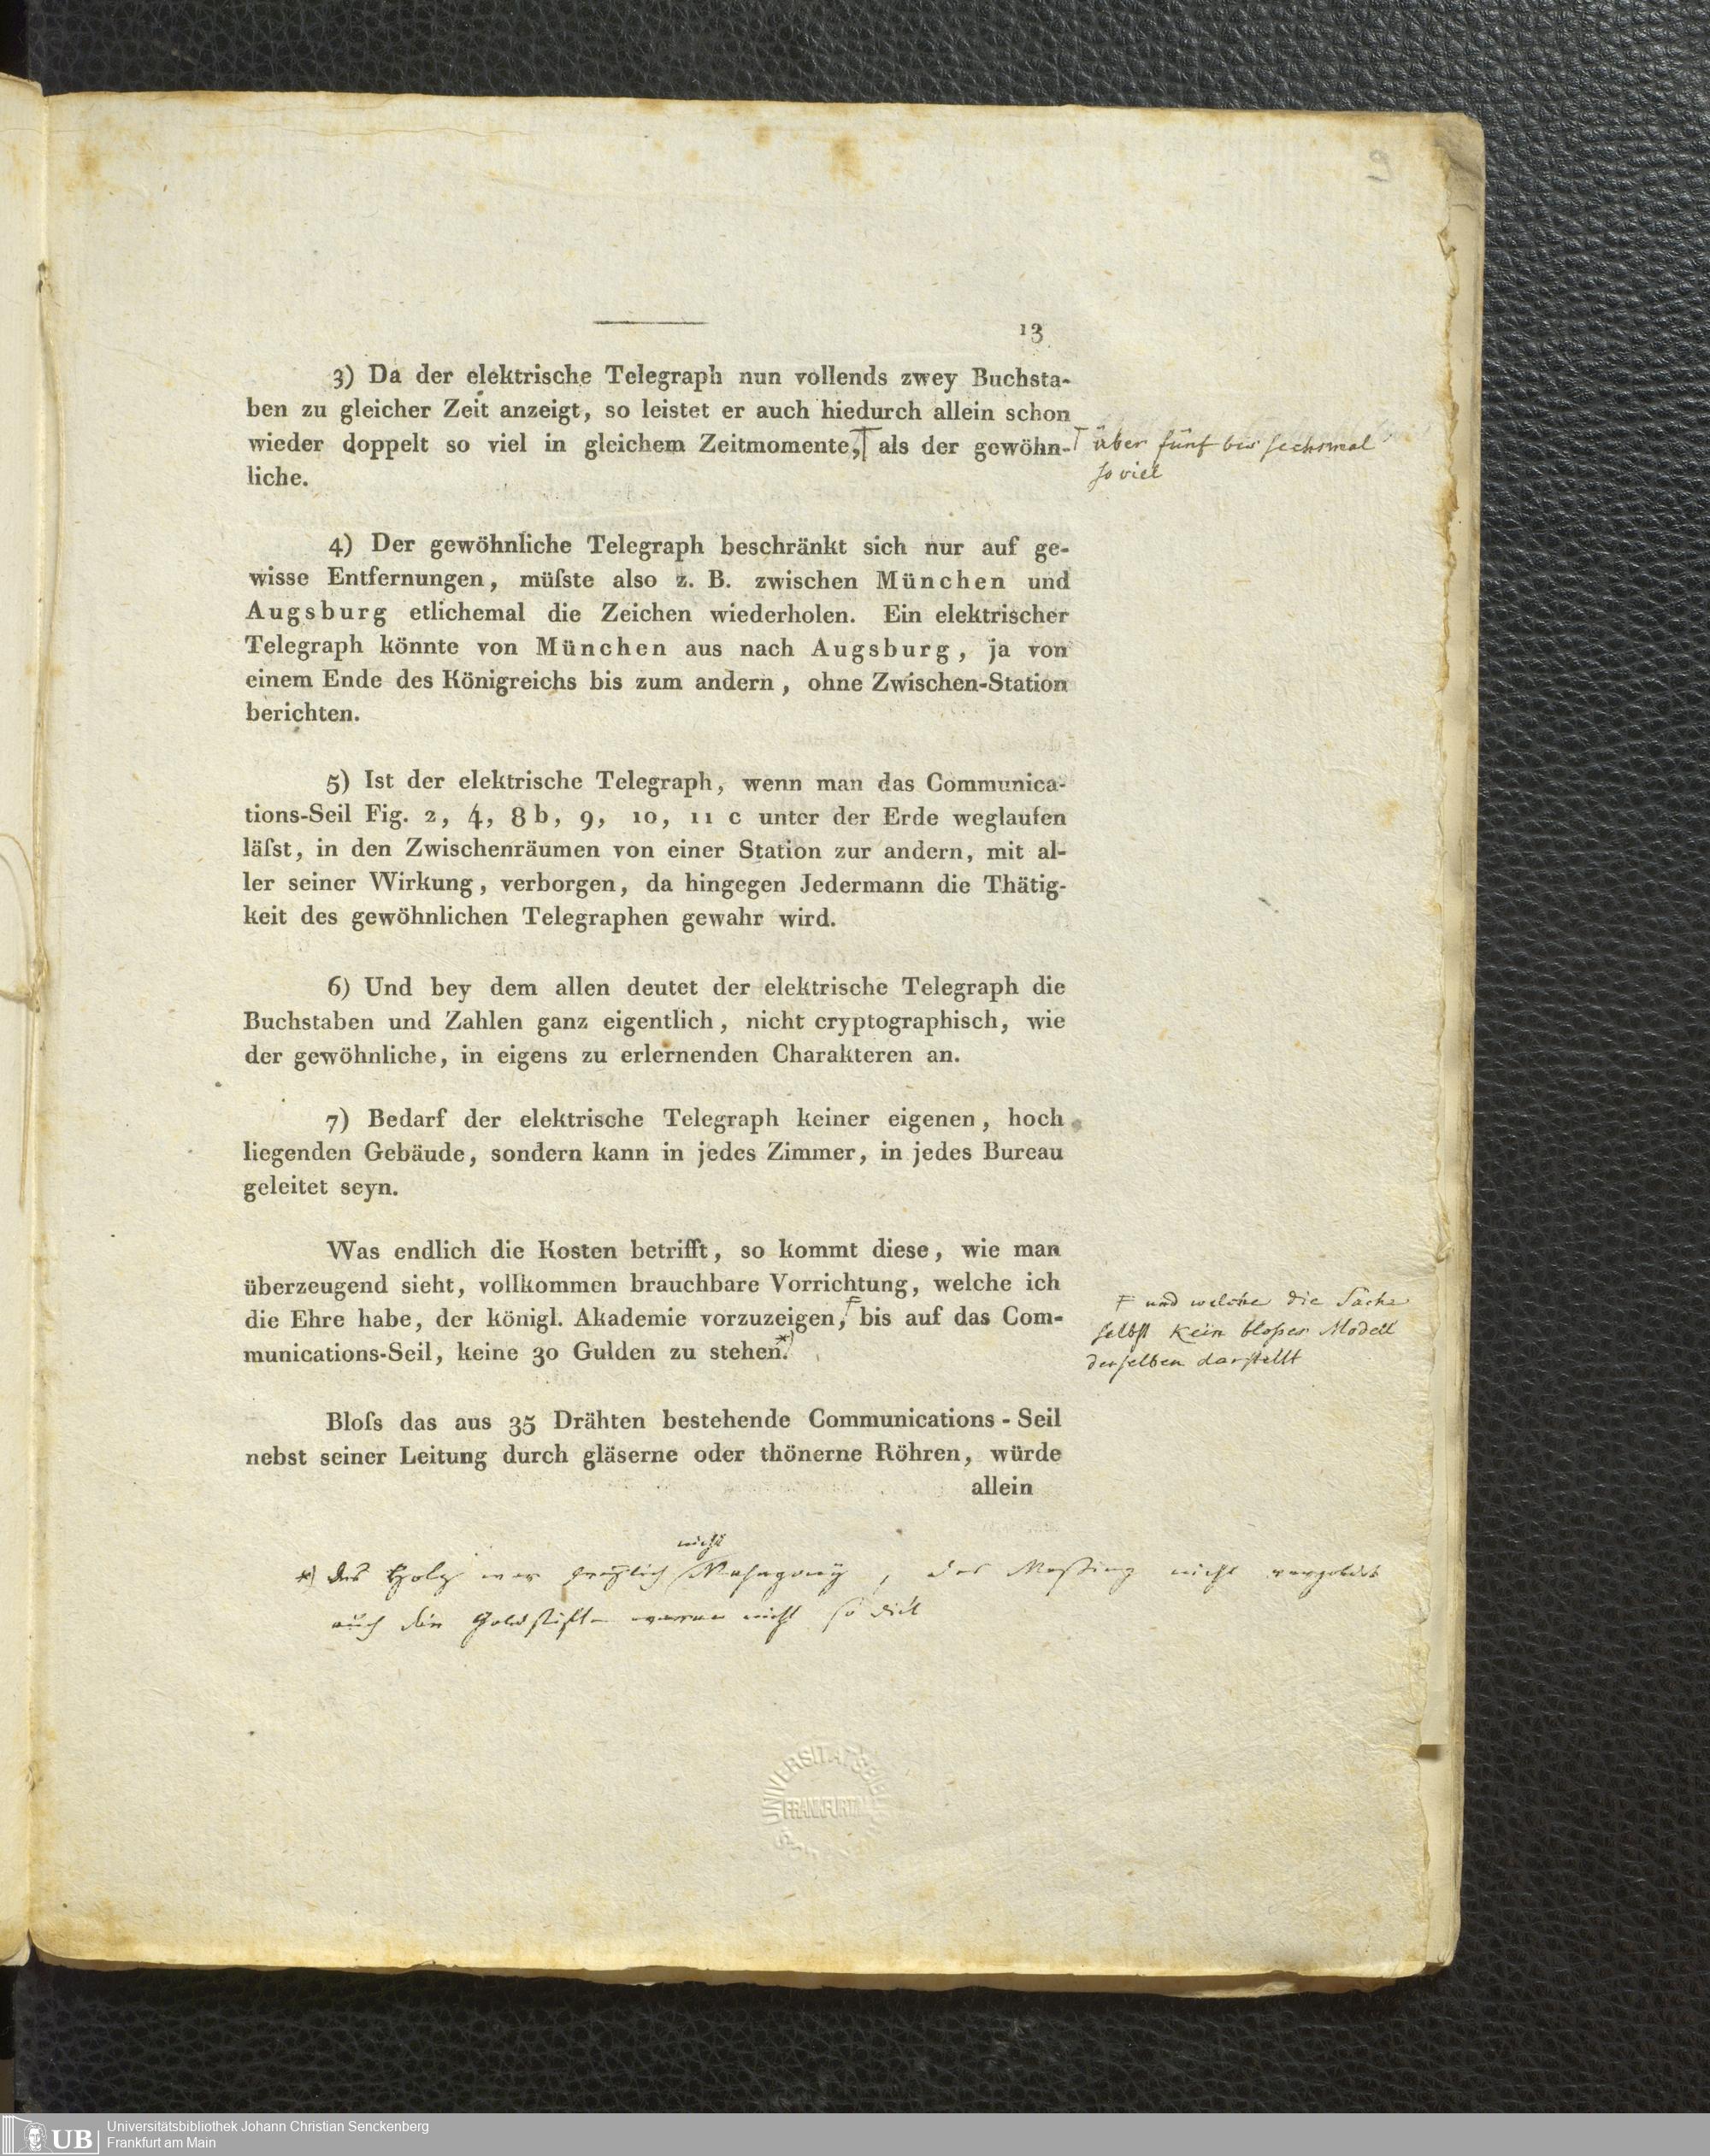 9
13
3) Da der elektrische Telegraph nun vollends zwey Buchsta-
ben zu gleicher Zeit anzeigt, so leistet er auch hiedurch allein schon
wieder doppelt so viel in gleichem Zeitmomente, als der gewöhn-
liche.
über fünf bis sechsmal
so viel
4) Der gewöhnliche Telegraph beschränkt sich nur auf ge-
wisse Entfernungen, müſste also z. B. zwischen München und
Augsburg etlichemal die Zeichen wiederholen. Ein elektrischer
Telegraph könnte von München aus nach Augsburg, ja von
einem Ende des Königreichs bis zum andern, ohne Zwischen-Station
berichten.
5) Ist der elektrische Telegraph, wenn man das Communica-
tions-Seil Fig. 2, 4, 8 b, 9, 10, 11 c unter der Erde weglaufen
läſst, in den Zwischenräumen von einer Station zur andern, mit al-
ler seiner Wirkung, verborgen, da hingegen Jedermann die Thätig-
keit des gewöhnlichen Telegraphen gewahr wird.
6) Und bey dem allen deutet der elektrische Telegraph die
Buchstaben und Zahlen ganz eigentlich, nicht cryptographisch, wie
der gewöhnliche, in eigens zu erlernenden Charakteren an.
7) Bedarf der elektrische Telegraph keiner eigenen, hoch
liegenden Gebäude, sondern kann in jedes Zimmer, in jedes Bureau
geleitet seyn.
Was endlich die Kosten betrifft, so kommt diese, wie man
überzeugend sieht, vollkommen brauchbare Vorrichtung, welche ich
die Ehre habe, der königl. Akademie vorzuzeigen, bis auf das Com-
munications-Seil, keine 30 Gulden zu stehen. *)
F und welche die Sache
selbst kein bloßes Modell
derselben darstellt
Bloſs das aus 35 Drähten bestehende Communications-Seil
nebst seiner Leitung durch gläserne oder thönerne Röhren, würde
allein
nicht
*) das Holz war freylich Mahagony, das Meßing nicht vergoldet
auch die Goldstifte waren nicht so dick
UNIVERSITÄTSBIBL
FRANKFURT
UB
Universitätsbibliothek Johann Christian Senckenberg
Frankfurt am Main